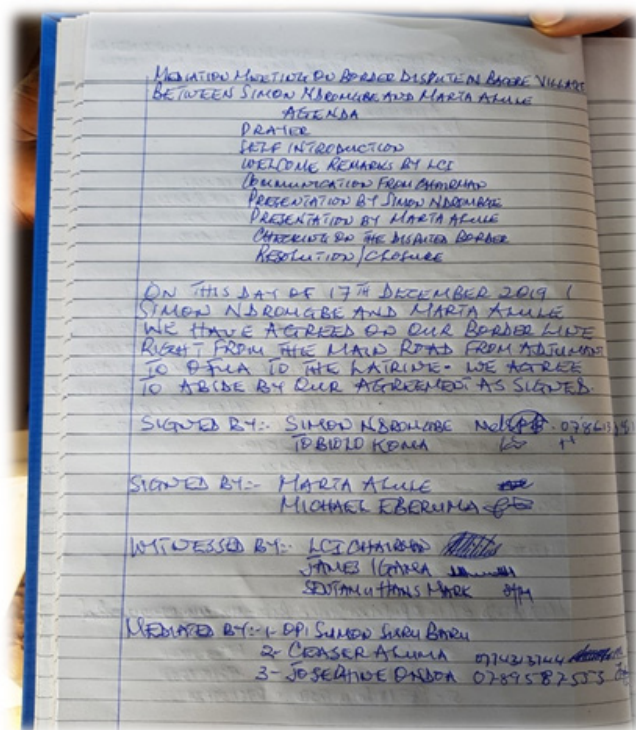 MEDIATION MEETING ON BORDER DISPUTE IN BAGERE VILLAGE
BETWEEN SIMON NDROMGBE AND MARTA AMULE
AGENDA
PRAYER
SELF INTRODUCTION
WELCOME REMARKS BY LCI
COMMUNICATION FROM CHAIRMAN
PRESENTATION BY SIMON NDROMGBE
PRESENTATION BY MARTA
CHECKING ON THE DISPUTED BORDER
RESOLUTION/CLOSURE
ON THIS DAY OF 17TH DECEMBER 2019 I
SIMON NDROMGBE AND MARTA
WE HAVE AGREED ON OUR BORDER LINE
RIGHT FROM THE MAIN ROAD FROM ADJUMANI
TO OFUA TO THE LATRINE - WE AGREE
TO ABIDE BY OUR AGREEMENT AS SIGNED.
SIGNED BY:- SIMON NDROMGBE
TOBIOLO KOMA
SIGNED BY:- MARTA
MICHAEL EBERUMA
WITNESSED BY:- LCI CHAIRMAN
JAMES IGAMA
HANS MARK
MEDIATED BY:- 1- OPI SIMON SURU BARU
2- CEASER ALUMA 0774313744
3- JOSEPHINE ONDOA 0789587555